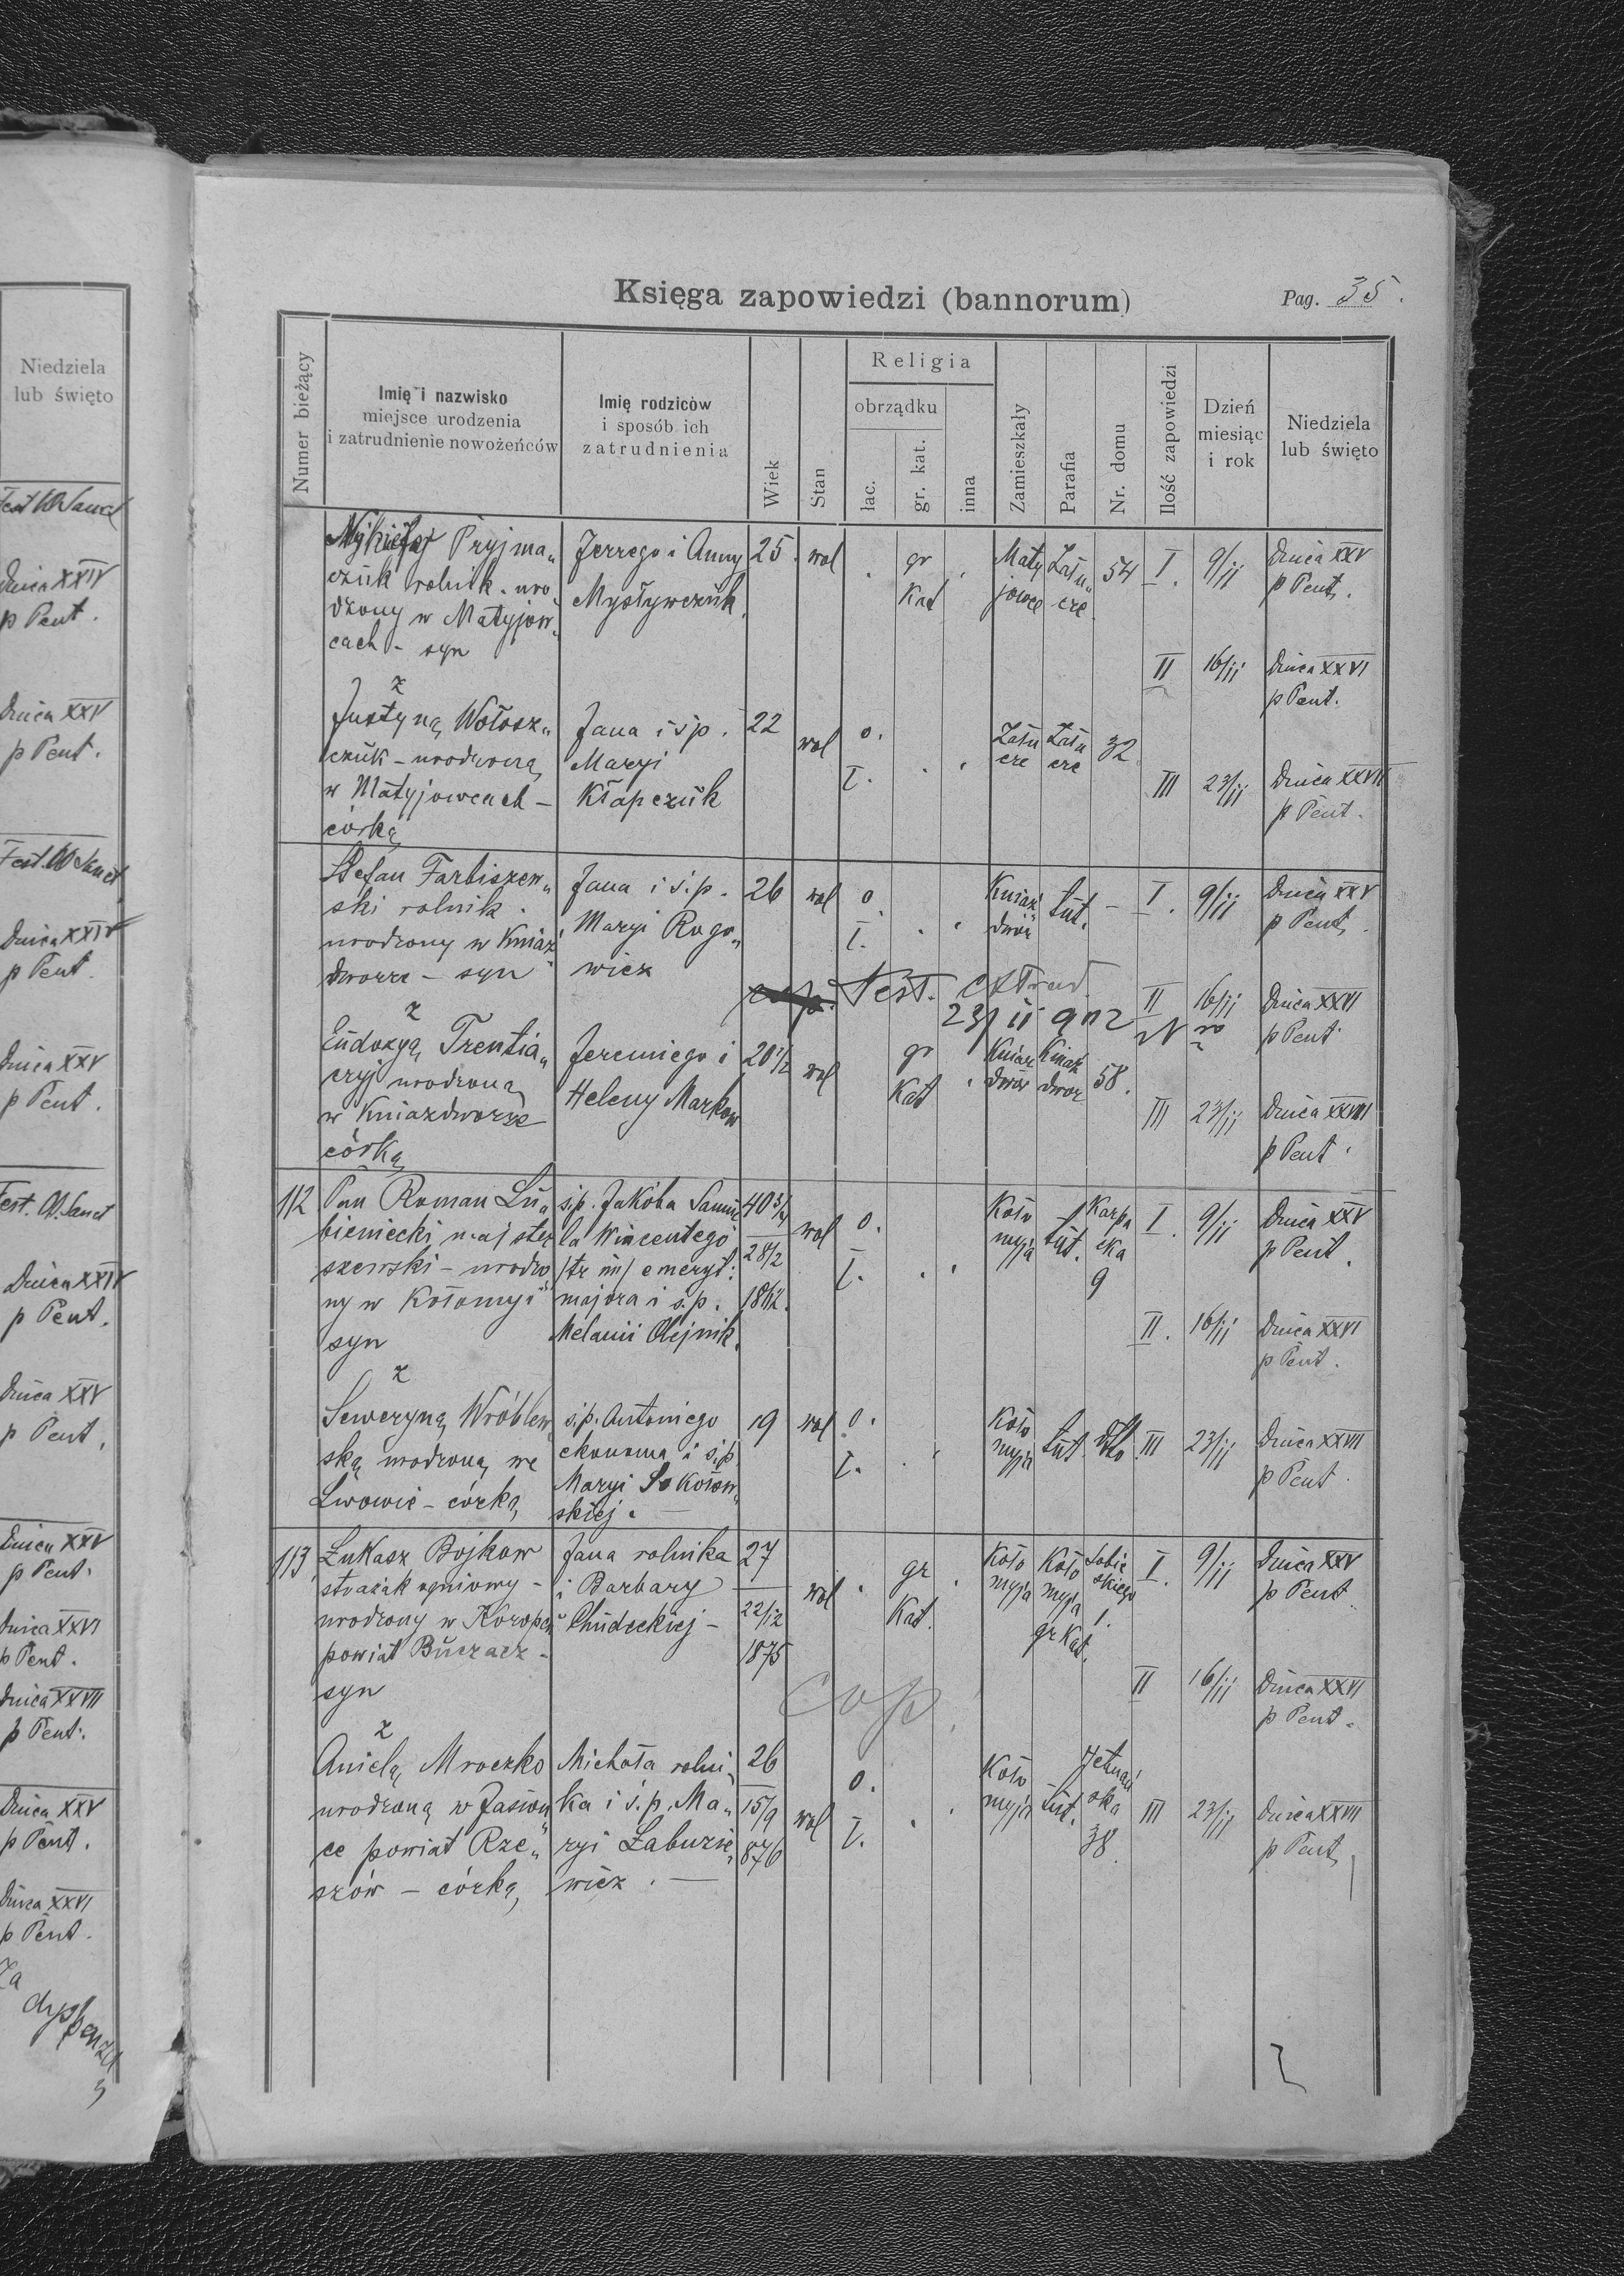 Niedziela
lub święto
Dnica XXIV
p Pent.
Dnica XXV
p Pent.
Dnica XXIV
p Pent.
Dnica XXV
p Pent.
Dnica XXIV
p Pent.
Dnica XXV
p Pent.
Dnica XXV
p Pent.
Dnica XXVI
p Pent.
Dnica XXVII
p Pent.
Dnica XXV
p Pent.
Dnica XXVI
p Pent.
Za
Księga zapowiedzi (bannorum)
Pag. 35.
Numer bieżący
Imię i nazwisko
miejsce urodzenia
i zatrudnienie nowożeńców
Imię rodziców
i sposób ich
zatrudnienia
Wiek
Stan
Religia
obrządku
łac.
gr. kat.
inna
Zamieszkały
Parafia
Nr. domu
Ilość zapowiedzi
Dzień
miesiąc
i rok
Niedziela
lub święto
Pryjma„
czuk rolnik. uro„
dzony w Matyjow„
cach - syn
Jerzego i Anny
Mysływczuk.
25. wol . gr Kat . Maty jowce Zału„ cze 54 I. 9/11 Dnica XXV
p Pent.
II 16/11 Dnica XXVI
p Pent.
z
Justyną Wołosz„
czuk - urodzoną
w Matyjowcach -
córką
Jana i ś.p.
Maryi
Kłapczuk
22 wol o. ł. . . Zału cze Zału cze 32
III 23/11 Dnica XXVII
p Pent.
Stefan Farbiszew„
ski rolnik.
urodzony w Kniaź
dworze - syn
Jana i ś.p.
Maryi Rogo„
wicz
26 wol o. ł. . . Kniaź dwór tut. - I. 9/11 Dnica XXV
p Pent.
Test. extrad.
23/11 902
II 16/11 Dnica XXVI
p Pent.
z
Eudozyą Trentia„
czyj urodzoną
w Kniazdworze
córką
Jeremiego i
Heleny Markow
20 1/2 wol gr Kat . Kniaź dwór Kniaź dwor 58.
III 23/11 Dnica XXVII
p Pent.
112 Pan Roman Lu„
bieniecki majster
szewski - urodzo
ny w Kołomyi
syn
ś.p. Jakóba Samue
la Wincentego
/tr im/ emeryt:
majora i ś.p.
Melanii Olejnik.
40 3/4
28/2
1862.
wol o. ł. . . Koło myja tut. Karpa cka 9 I. 9/11 Dnica XXV
p Pent.
II. 16/11 Dnica XXVI
p Pent.
z
Seweryną Wróblew„
ską urodzoną we
Lwowie - córką
ś.p. Antoniego
ekonoma i ś.p.
Maryi Sokołow„
skiej. -
19 wol o. ł. . . Koło myja tut. dtto. III 23/11 Dnica XXVII
p Pent.
113 Łukasz Bojkow
strażak ogniowy -
urodzony w Koropcu
powiat Buczacz -
syn
Jana rolnika
i Barbary
Chudeckiej -
27
22/12
1875
wol . gr Kat. . Koło myja Koło myja gr Kat. Sobie skiego 1. I. 9/11 Dnica XXV
p Pent.
cop.
II 16/11 Dnica XXVI
p Pent.
z
Anielą Mroczko
urodzoną w Jasion
ce powiat Rze„
szów - córką
Michała rolni„
ka i ś.p. Ma„
ryi Łabuzie„
wicz. -
26
15/9
876
wol o. ł. . . Koło myja tut. 38. III 23/11 Dnica XXVII
p Pent.